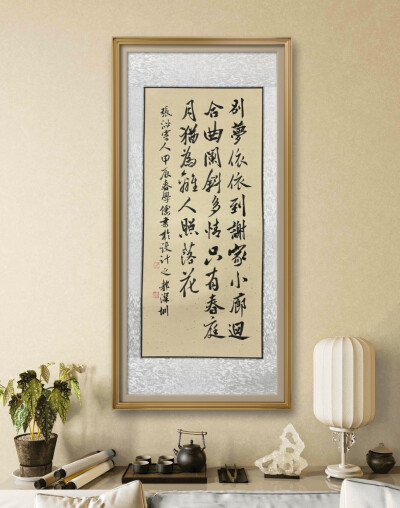 别夢依依到謝家小廊迴
合曲闌斜多情只有春庭
月猶為離人照落花
張泌寄人甲辰春學儒書於設計之都深圳